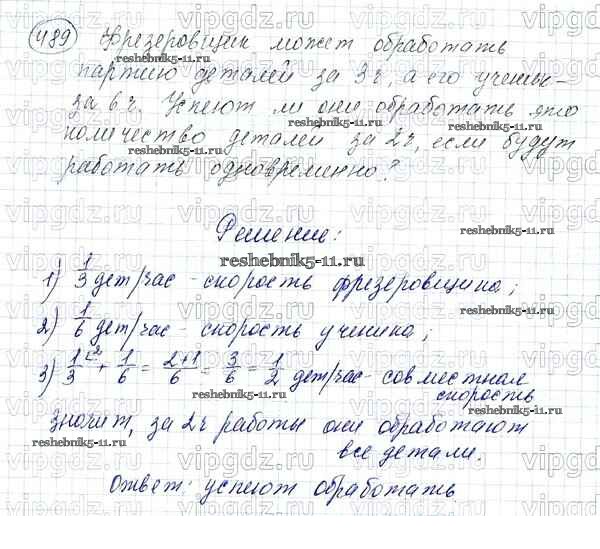 489 Фрезеровщик может обработать
партию деталей за 3ч, а его ученик-
за 6ч. Успеют ли они обработать это
количество деталей за 2ч, если будут
работать одновременно?
Решение:
1) 1/3 дет/час - скорость фрезеровщика;
2) 1/6 дет/час - скорость ученика;
3) 1/3 ⸦2 + 1/6 = 2+1/6 = 3/6 = 1/2 дет/час - совместная
скорость
значит, за 2ч работы они обработают
все детали.
Ответ: успеют обработать
vipgdz.ru
reshebnik5-11.ru